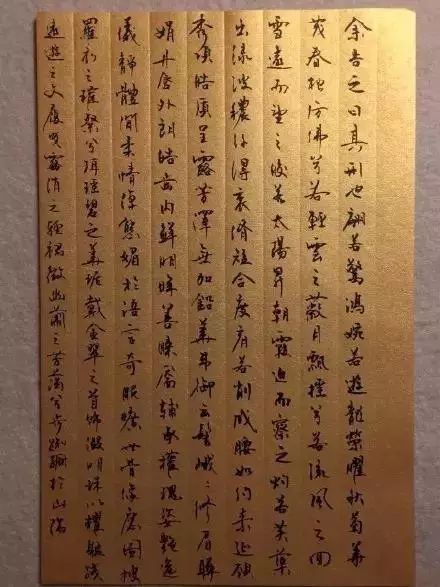 余告之曰其形也翩若驚鴻婉若遊龍榮曜秋菊華
茂春松仿佛兮若輕雲之蔽月飄摇兮若流風之回
雪遠而望之皎若太陽昇朝霞迫而察之灼若芙蕖
出渌波穠纤得衷脩短合度肩若削成腰如約素延頸
秀項皓質呈露芳澤無加鉛華弗御雲髻峨〻脩眉聯
娟丹唇外朗皓齒内鮮明眸善睞靨輔承權瑰姿艷逸
儀靜體閑柔情綽態媚於語言奇服曠世骨像應圖披
羅衣之璀粲兮珥瑤碧之華琚戴金翠之首飾綴明珠以耀軀踐
遠遊之文履曳霧綃之輕裾微幽蘭之芳藹兮步踟躕於山隅